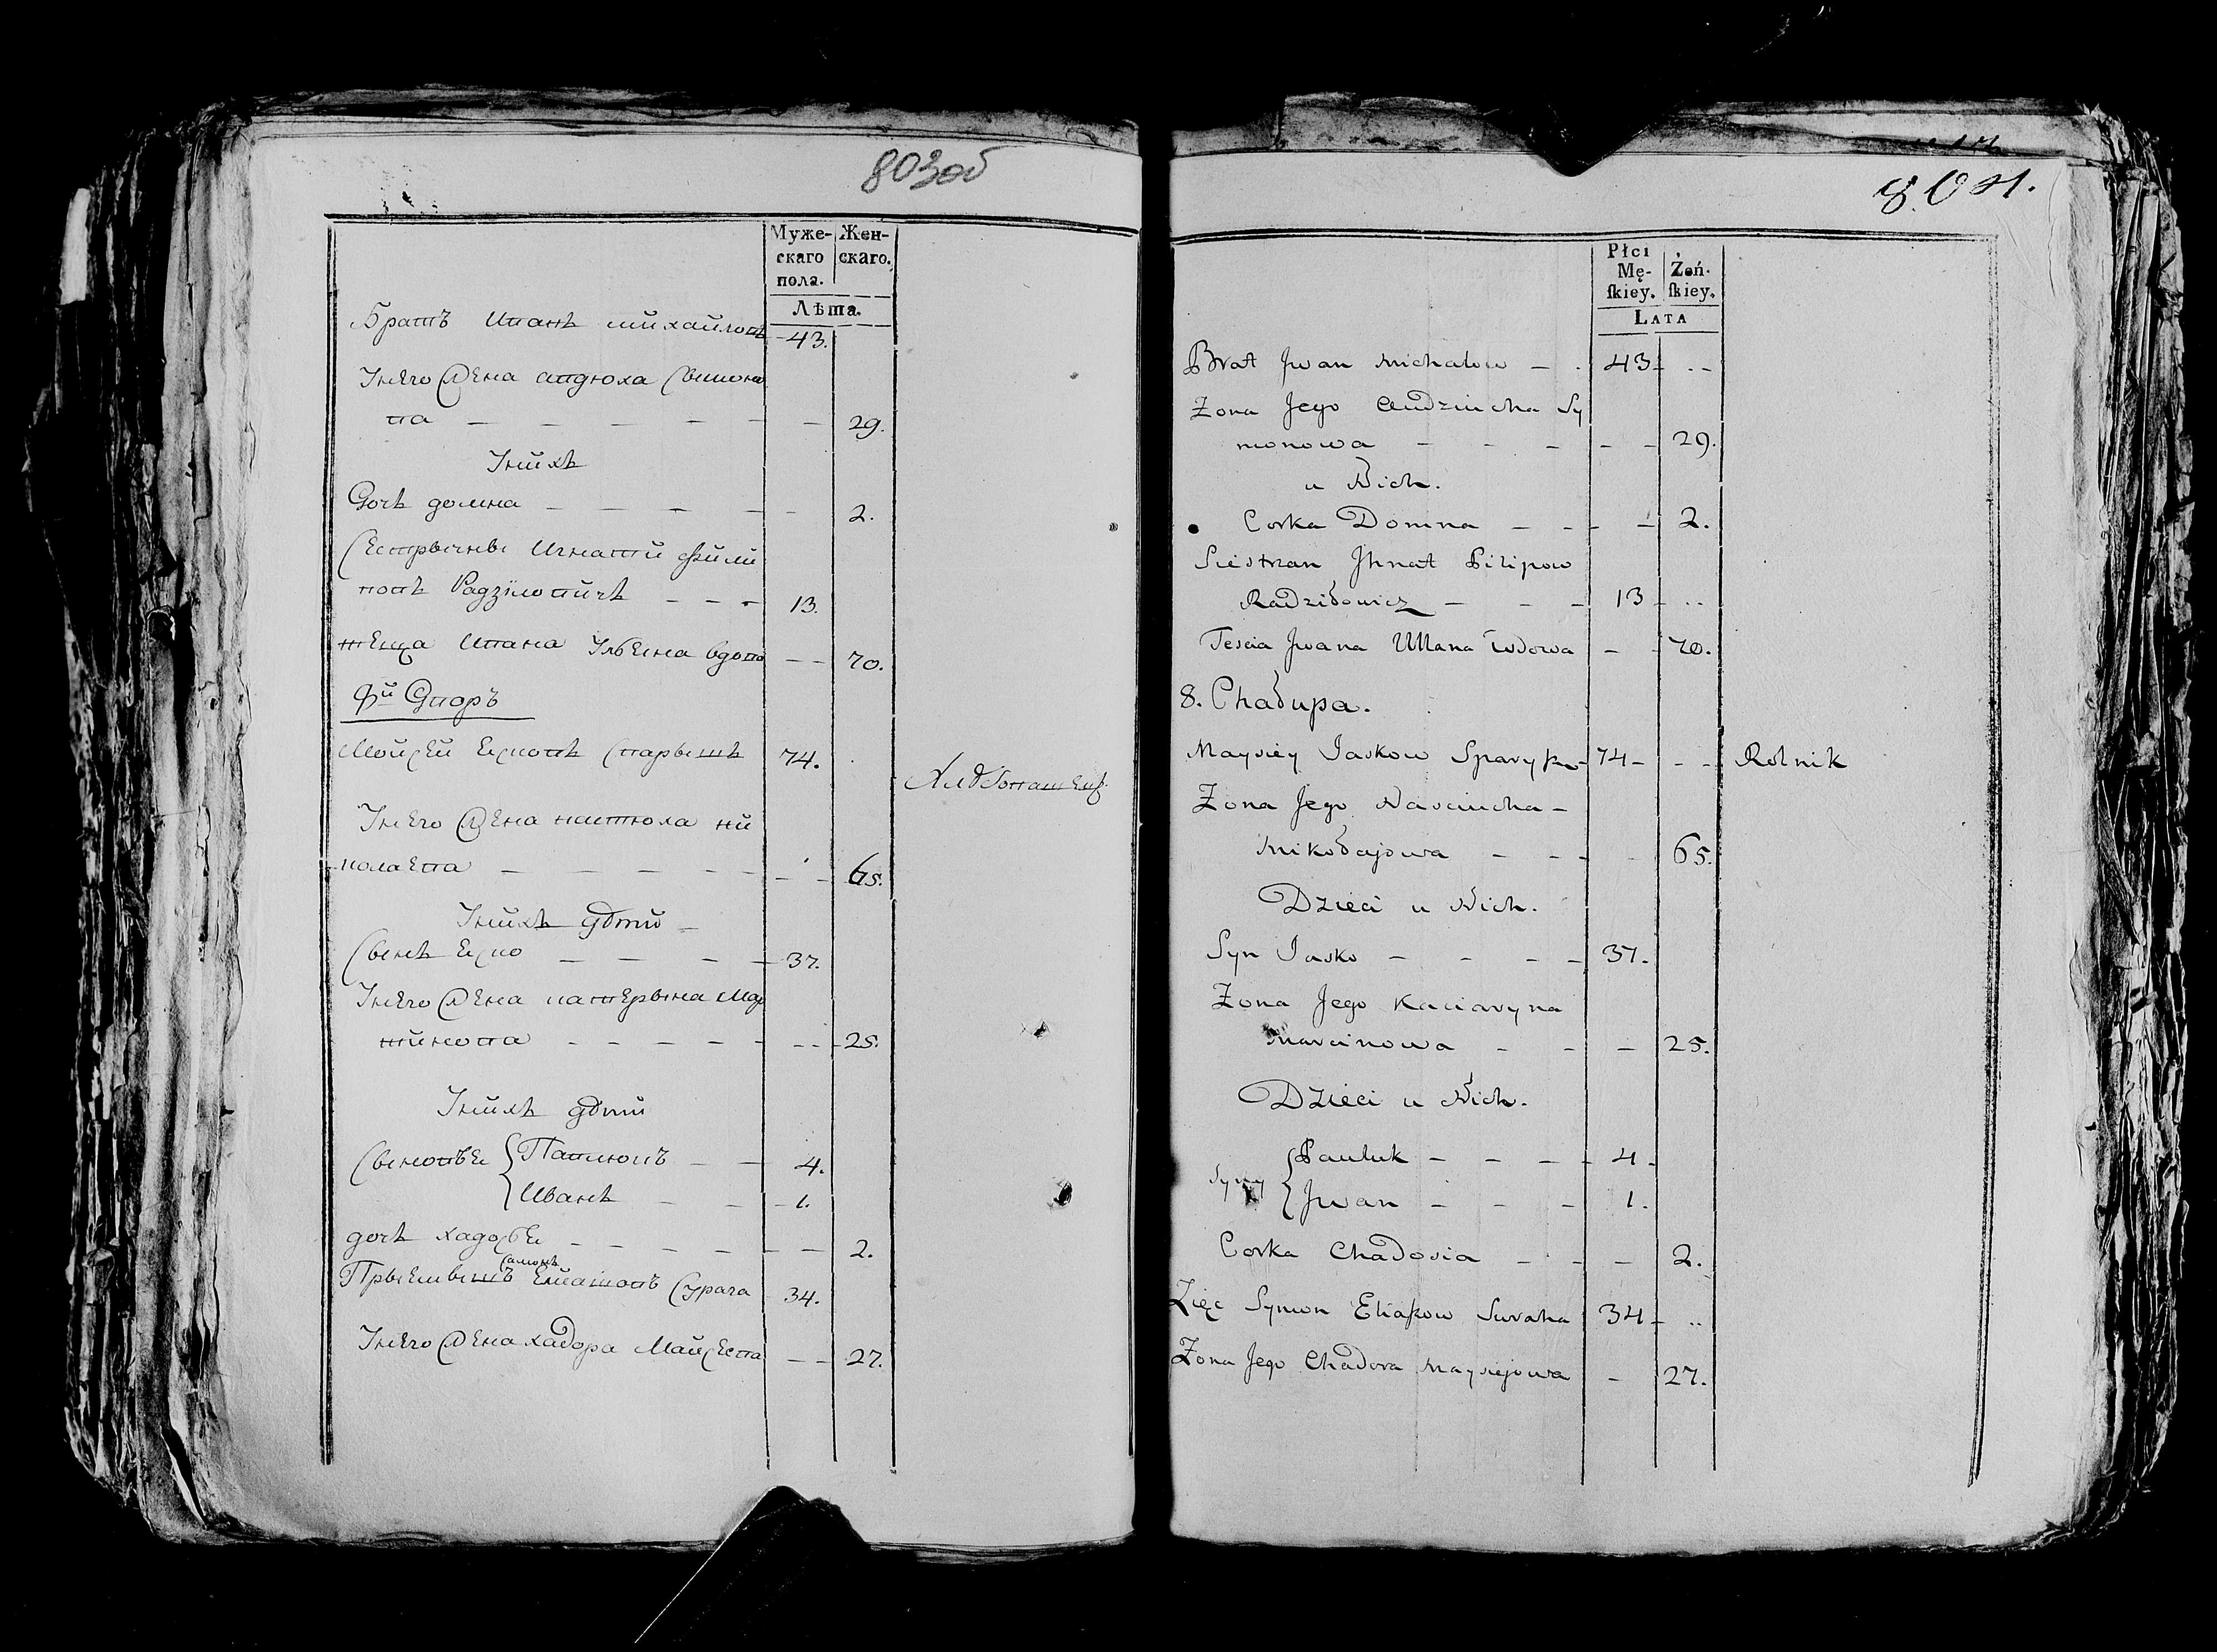 803об
Муже-
скаго
пола.
Жен-
скаго.
Лѣта.
Братъ Иванъ михайловъ 43.
Унего жена андюха Сымоно
ва — — — — — 29.
Унихъ
Дочь домна — — — — 2.
Сестрынъ Игнатй Фили
повъ Радзиловичъ — — — 13.
теща Ивана Ульяна вдова — — 70.
8й Дворъ
Мойсей Ясковъ Спарышъ 74.
Хлѣбопашецъ
Унего жена настюха ни
колаева — — — — — 65.
Унихъ дѣти —
Сынъ Яско — — — — 37.
Унего жена катерына Мар
тинова — — — — — 25.
Унихъ дѣти
Сыновья { Павлюкъ — — 4.
{ Иванъ — — 1.
дочь хадосья — — — — — 2.
Самонъ
Прыемышъ Ельяшовъ Сурага 34.
Унего жена хадора Майсеева — — 27.
804.
Płci
Mę-
ſkiey.
Żeń-
ſkiey.
Lata
Brat Jwan Michałow — 43 — ..
Zona Jego Audziucha Sy
monowa — — — — 29.
u Nich.
Corka Domna — — — 2.
Siestran Jhnat Pilipow
Radziłowicz — — — 13 — ..
Tescia Jwana Ullana Wdowa — 70.
8. Chałupa.
Maysiey Jaskow Sparysz 74 — — — Rolnik
Zona Jego Nasciucha —
Mikołajowa — — — 65.
Dzieci u Nich.
Syn Jasko — — — — 37.
Zona Jego Kaciaryna
Marcinowa — — — 25.
Dzieci u Nich.
Syny { Pauluk — — — 4 —
{ Jwan — — — 1.
Corka Chadosia — — — 2.
Zięc Symon Eliaszow Suraha 34 — ..
Zona Jego Chadora Maysiejowa — 27.